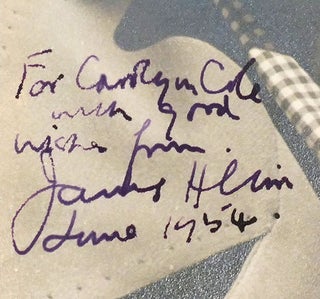 For Carolyn Cole
with good
wishes from.
James
June 1954.